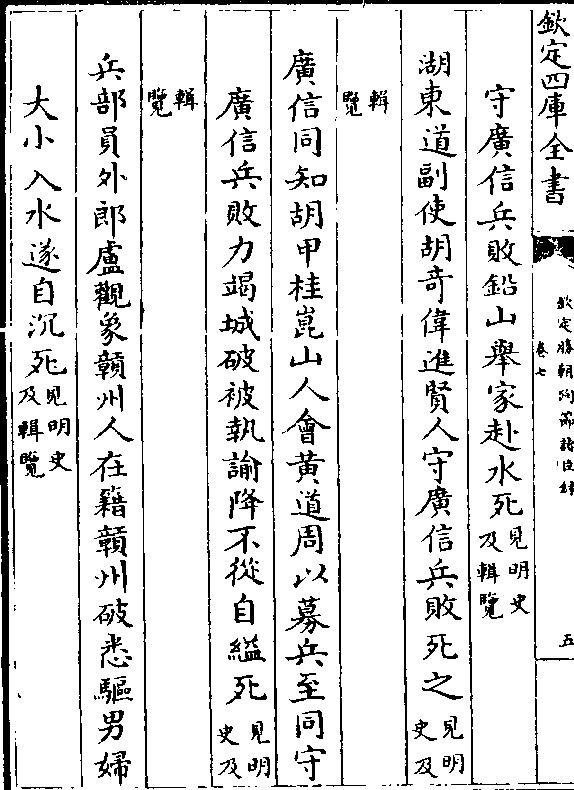 欽定四庫全書
欽定勝朝殉節諸臣錄
卷七
五
守廣信兵敗鉛山舉家赴水死見明史
及輯覽
湖東道副使胡奇偉進賢人守廣信兵敗死之見明
史及
輯
覽
廣信同知胡甲桂崑山人會黃道周以募兵至同守
廣信兵敗力竭城破被執諭降不從自縊死見明
史及
輯
覽
兵部員外郎盧觀象贛州人在籍贛州破悉驅男婦
大小入水遂自沉死見明史
及輯覽